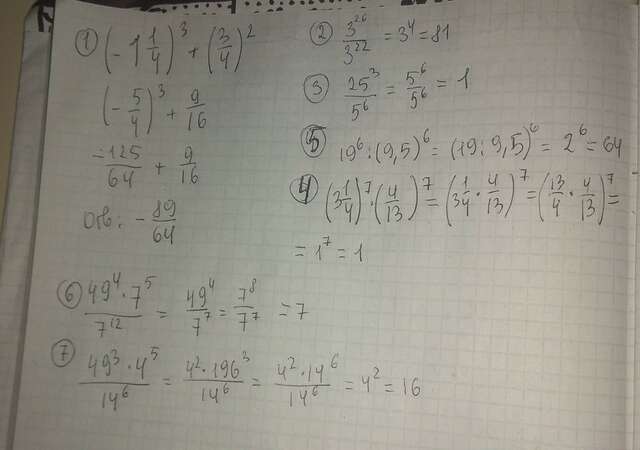 ① (-1 1/4)³ + (3/4)²
(-5/4)³ + 9/16
-125/64 + 9/16
Отв: -89/64
② 3²⁶/3²² = 3⁴ = 81
③ 25³/5⁶ = 5⁶/5⁶ = 1
⑤ 19⁶ : (9,5)⁶ = (19 : 9,5)⁶ = 2⁶ = 64
④ (3 1/4)⁷ · (4/13)⁷ = (3 1/4 · 4/13)⁷ = (13/4 · 4/13)⁷ =
= 1⁷ = 1
⑥ 49⁴ · 7⁵/7¹² = 49⁴/7⁷ = 7⁸/7⁷ = 7
⑦ 49³ · 4⁵/14⁶ = 4² · 196³/14⁶ = 4² · 14⁶/14⁶ = 4² = 16